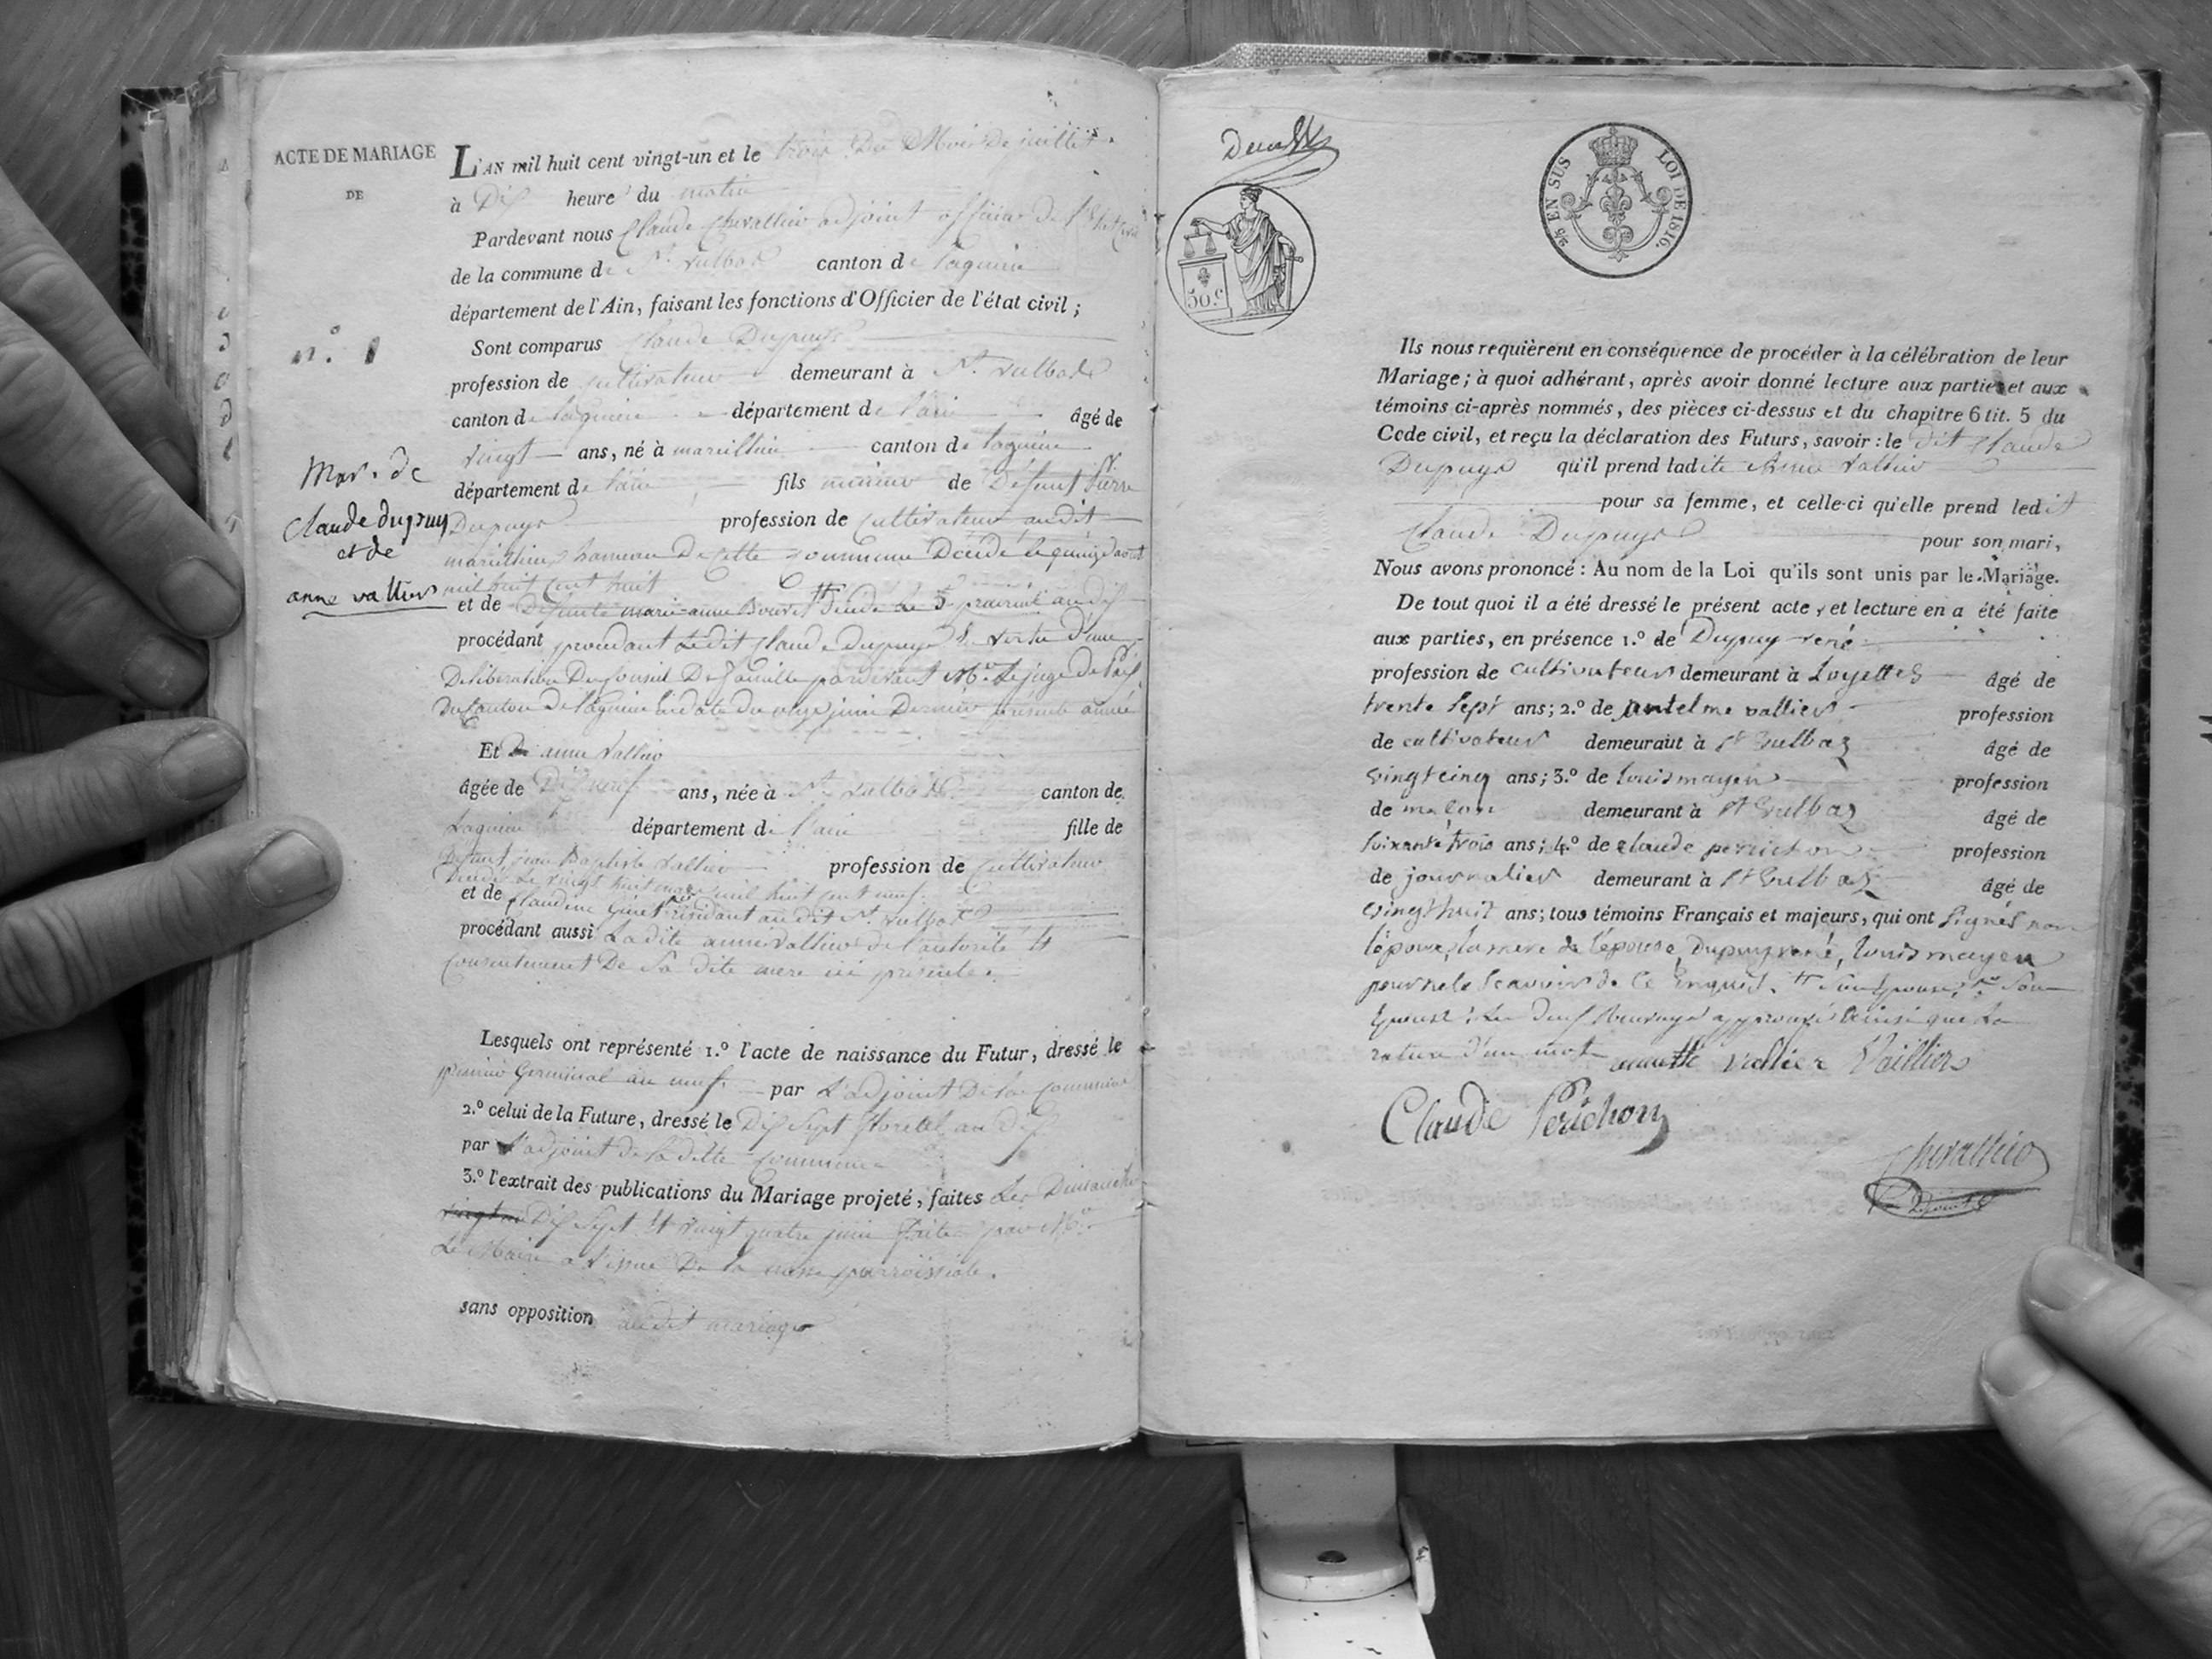 ACTE DE MARIAGE
DE
n.° 1
Mar. de
Claude dupuy
et de
anne vallier
L'AN mil huit cent vingt-un et le trois Du Mois De juillet
à Dix heure du matin
Pardevant nous Claude Chevallier adjoint officier de l'état civil
de la commune de St. Vulbas canton de lagnieu
département de l'Ain, faisant les fonctions d'Officier de l'état civil ;
Sont comparus Claude Dupuys
profession de cultivateur demeurant à St. Vulbas
canton de lagnieu département de l'ain âgé de
vingt ans, né à marcillieu canton de lagnieu
département de l'ain fils mineur de Défunt Pierre
Dupuys profession de cultivateur au dit
marcillieu hameau De cette commune Décédé le quinze août
mil huit cent huit
et de Défunte marie-anne Bouvet Décédé le 5 prairial an dix
procédant procédant Ledit Claude Dupuys En vertu d'une
Délibération Du Conseil De famille pardevant Mr. Le juge De Paix
Du Canton De lagnieu En date du onze juin Dernier présente année
Et De anne Vallier
âgée de Dix neuf ans, née à St. Vulbas canton de
Lagnieu département de l'ain fille de
Défunt jean Baptiste Vallier profession de cultivateur
Décédé Le vingt huit mars mil huit cent neuf
et de Claudine Ginet résidant au dit St. Vulbas
procédant aussi Ladite anne Vallier de l'autorité et
Consentement De Sa dite mere ici présente.
Lesquels ont représenté 1.° l'acte de naissance du Futur, dressé le
Premier Germinal an neuf par L'adjoint De la Commune
2.° celui de la Future, dressé le Dix Sept floréal an Dix
par L'adjoint de la ditte Commune
3.° l'extrait des publications du Mariage projeté, faites Les Dimanche
Dix Sept et vingt quatre juin faite par Mr.
Le Maire a l'issue De la messe parroissiale.
sans opposition audit mariage
50.c
25 EN SUS LOI DE 1816.
Ils nous requièrent en conséquence de procéder à la célébration de leur
Mariage ; à quoi adhérant, après avoir donné lecture aux parties et aux
témoins ci-après nommés, des pièces ci-dessus et du chapitre 6 tit. 5 du
Code civil, et reçu la déclaration des Futurs, savoir : le dit Claude
Dupuys qu'il prend ladite Anne Vallier
pour sa femme, et celle-ci qu'elle prend ledit
Claude Dupuys pour son mari,
Nous avons prononcé : Au nom de la Loi qu'ils sont unis par le Mariage.
De tout quoi il a été dressé le présent acte, et lecture en a été faite
aux parties, en présence 1.° de Dupuy rené
profession de cultivateur demeurant à Loyettes âgé de
trente Sept ans ; 2.° de antelme vallier profession
de cultivateur demeurant à St Vulbas âgé de
vingt cinq ans ; 3.° de louis mayen profession
de maçon demeurant à St Vulbas âgé de
soixante trois ans ; 4.° de claude perichon profession
de journalier demeurant à St Vulbas âgé de
vingt huit ans ; tous témoins Français et majeurs, qui ont signés non
l'époux, la mere de l'épouse, Dupuy rené, louis mayen
pour ne le Scavoir de ce Enquis.
approuvé ainsi que la
rature d'un mot
annette vallier Vailliers
Claude Perichon
Chevallier
adjoint